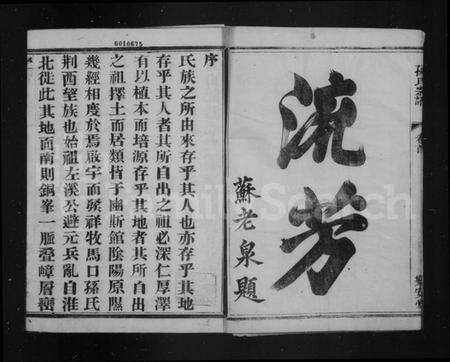 孫氏宗譜
流芳
蘇老泉題
6010675
序
氏族之所由來存乎其人也亦存乎其地
存乎其人者其所自出之祖必深仁厚澤
有以植本而培源存乎其地者其所自出
之祖擇土而居類皆于豳斯館陰陽原隰
幾經相度於焉啟宇而發祥牧馬口孫氏
荆西望族也始祖左溪公避元兵亂自淮
北徙此其地面南則銅峯一脈疊嶂層巒
FamilySearch